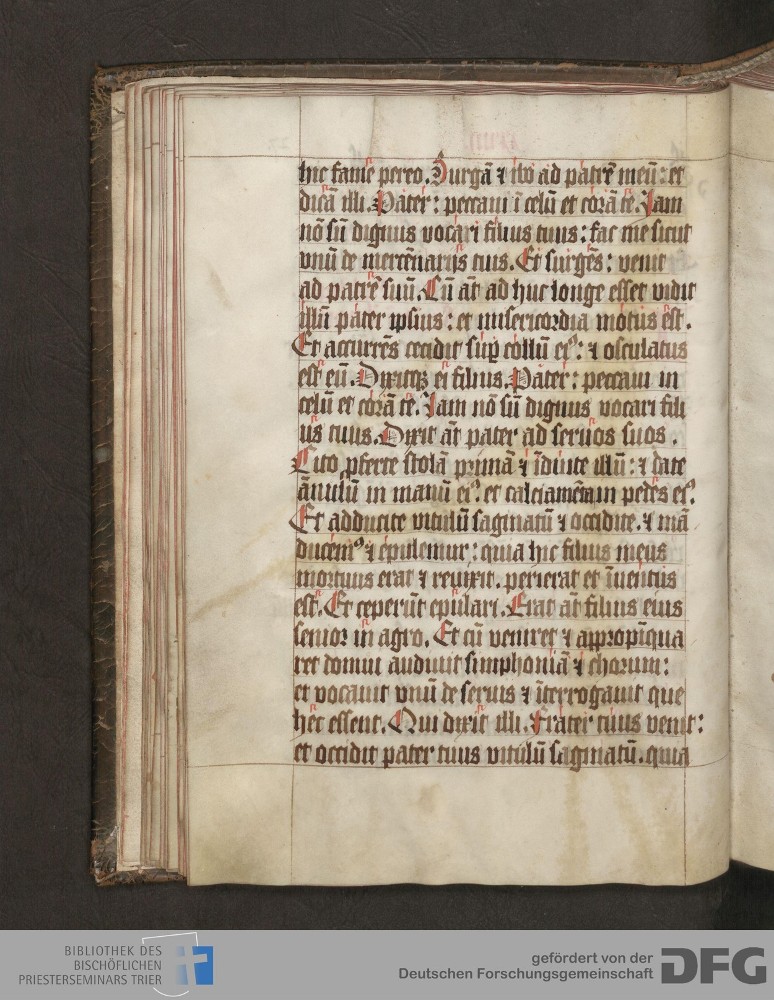 hic fame pereo. Surgā ⁊ ibo ad patrē meū: et
dicā illi. Pater: peccaui ī celū et corā te. Jam
nō sū dignus vocari filius tuus: fac me sicut
vnū de mercēnarijs tuis. Et surgēs: venit
ad patrē suū. Cū āt ad huc longe esset vidit
illū pater ipsius: et misericordia motus est.
Et accurrēs cecidit sup̄ collū eiꝰ: ⁊ osculatus
est eū. Dixitqꝫ ei filius. Pater: peccaui in
celū et corā te. Jam nō sū dignus vocari fili
us tuus. Dixit āt pater ad seruos suos.
Cito ꝓferte stolā primā ⁊ īduite illū: ⁊ date
ānulū in manū eiꝰ: et calciamēta in pedes eiꝰ.
Et adducite vitulū saginatū ⁊ occidite. ⁊ mā
ducemꝰ ⁊ epulemur: quia hic filius meus
mortuus erat ⁊ reuixit. perierat et īuentus
est. Et ceperūt epulari. Erat āt filius eius
senior in agro. Et cū veniret ⁊ appropīqua
ret domui audiuit simphoniā ⁊ chorum:
et vocauit vnū de seruis ⁊ īterrogauit que
hec essent. Qui dixit illi. Frater tuus venit:
et occidit pater tuus vitulū saginatū. quia
BIBLIOTHEK DES
BISCHÖFLICHEN
PRIESTERSEMINARS TRIER
gefördert von der
Deutschen Forschungsgemeinschaft DFG